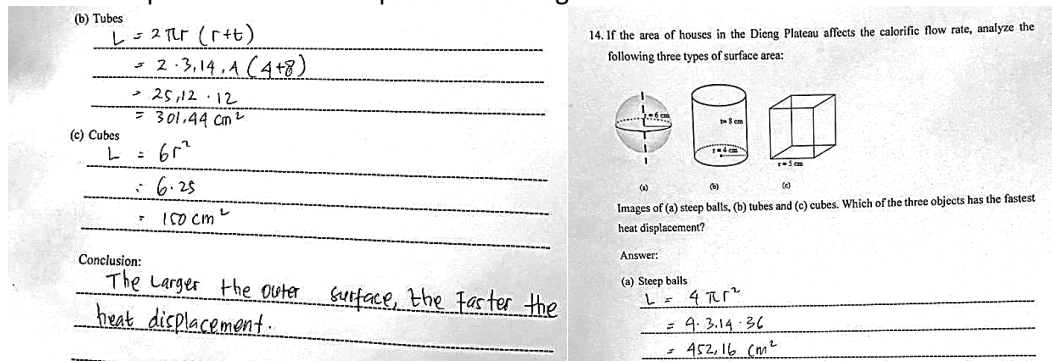 (b) Tubes
L = 2πr (r+t)
= 2 · 3,14 . 4 (4+8)
= 25,12 · 12
= 301.44 cm²
(c) Cubes
L = 6r²
= 6.25
= 150 cm²
Conclusion:
The Larger the outer surface, the Faster the
heat displacement.
14. If the area of houses in the Dieng Plateau affects the calorific flow rate, analyze the
following three types of surface area:
r=6 cm
t= 8 cm
r=4 cm
r=5 cm
(a) (b) (c)
Images of (a) steep balls, (b) tubes and (c) cubes. Which of the three objects has the fastest
heat displacement?
Answer:
(a) Steep balls
L = 4πr²
= 4. 3.14 .36
= 452,16 cm²